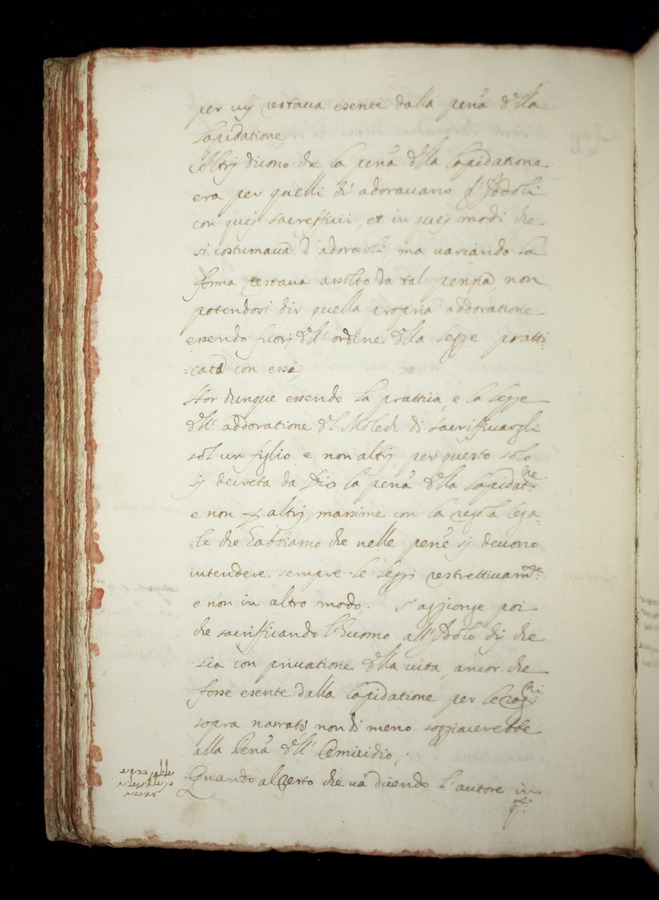 per cui restava esente dalla pena della
Lapidatione
Altri dicono che la pena della lapidatione
era per quelli ch'adoravano gl'Idoli
con quei sacrificii, et in quei modi che
si costumava d'adorarli, ma variando la
forma restava assolto da tal pena, non
potendosi dir quella propria addoratione
essendo fuori dell'ordine della legge pratti-
-cata con essi
Hor dunque essendo la prattica, e la legge
dell'addoratione del Molech di sacrificargli
sol un figlio e non altri per questo solo
si decreta da Dio la pena della lapidat.ne
e non altri, massime con la regola lega-
-le che habbiamo che nelle pene si devono
intendere sempre le leggi restrettivam.te
e non in altro modo. S'aggionge poi
che sacrificando l'huomo all'Idolo
sia con privatione della vita, ancor che
fosse esente dalla lapidatione per le rag.ni
sopra narrate non di meno soggiacerebbe
alla Pena dell'Omicidio,
Quando al testo che va dicendo l'autore in